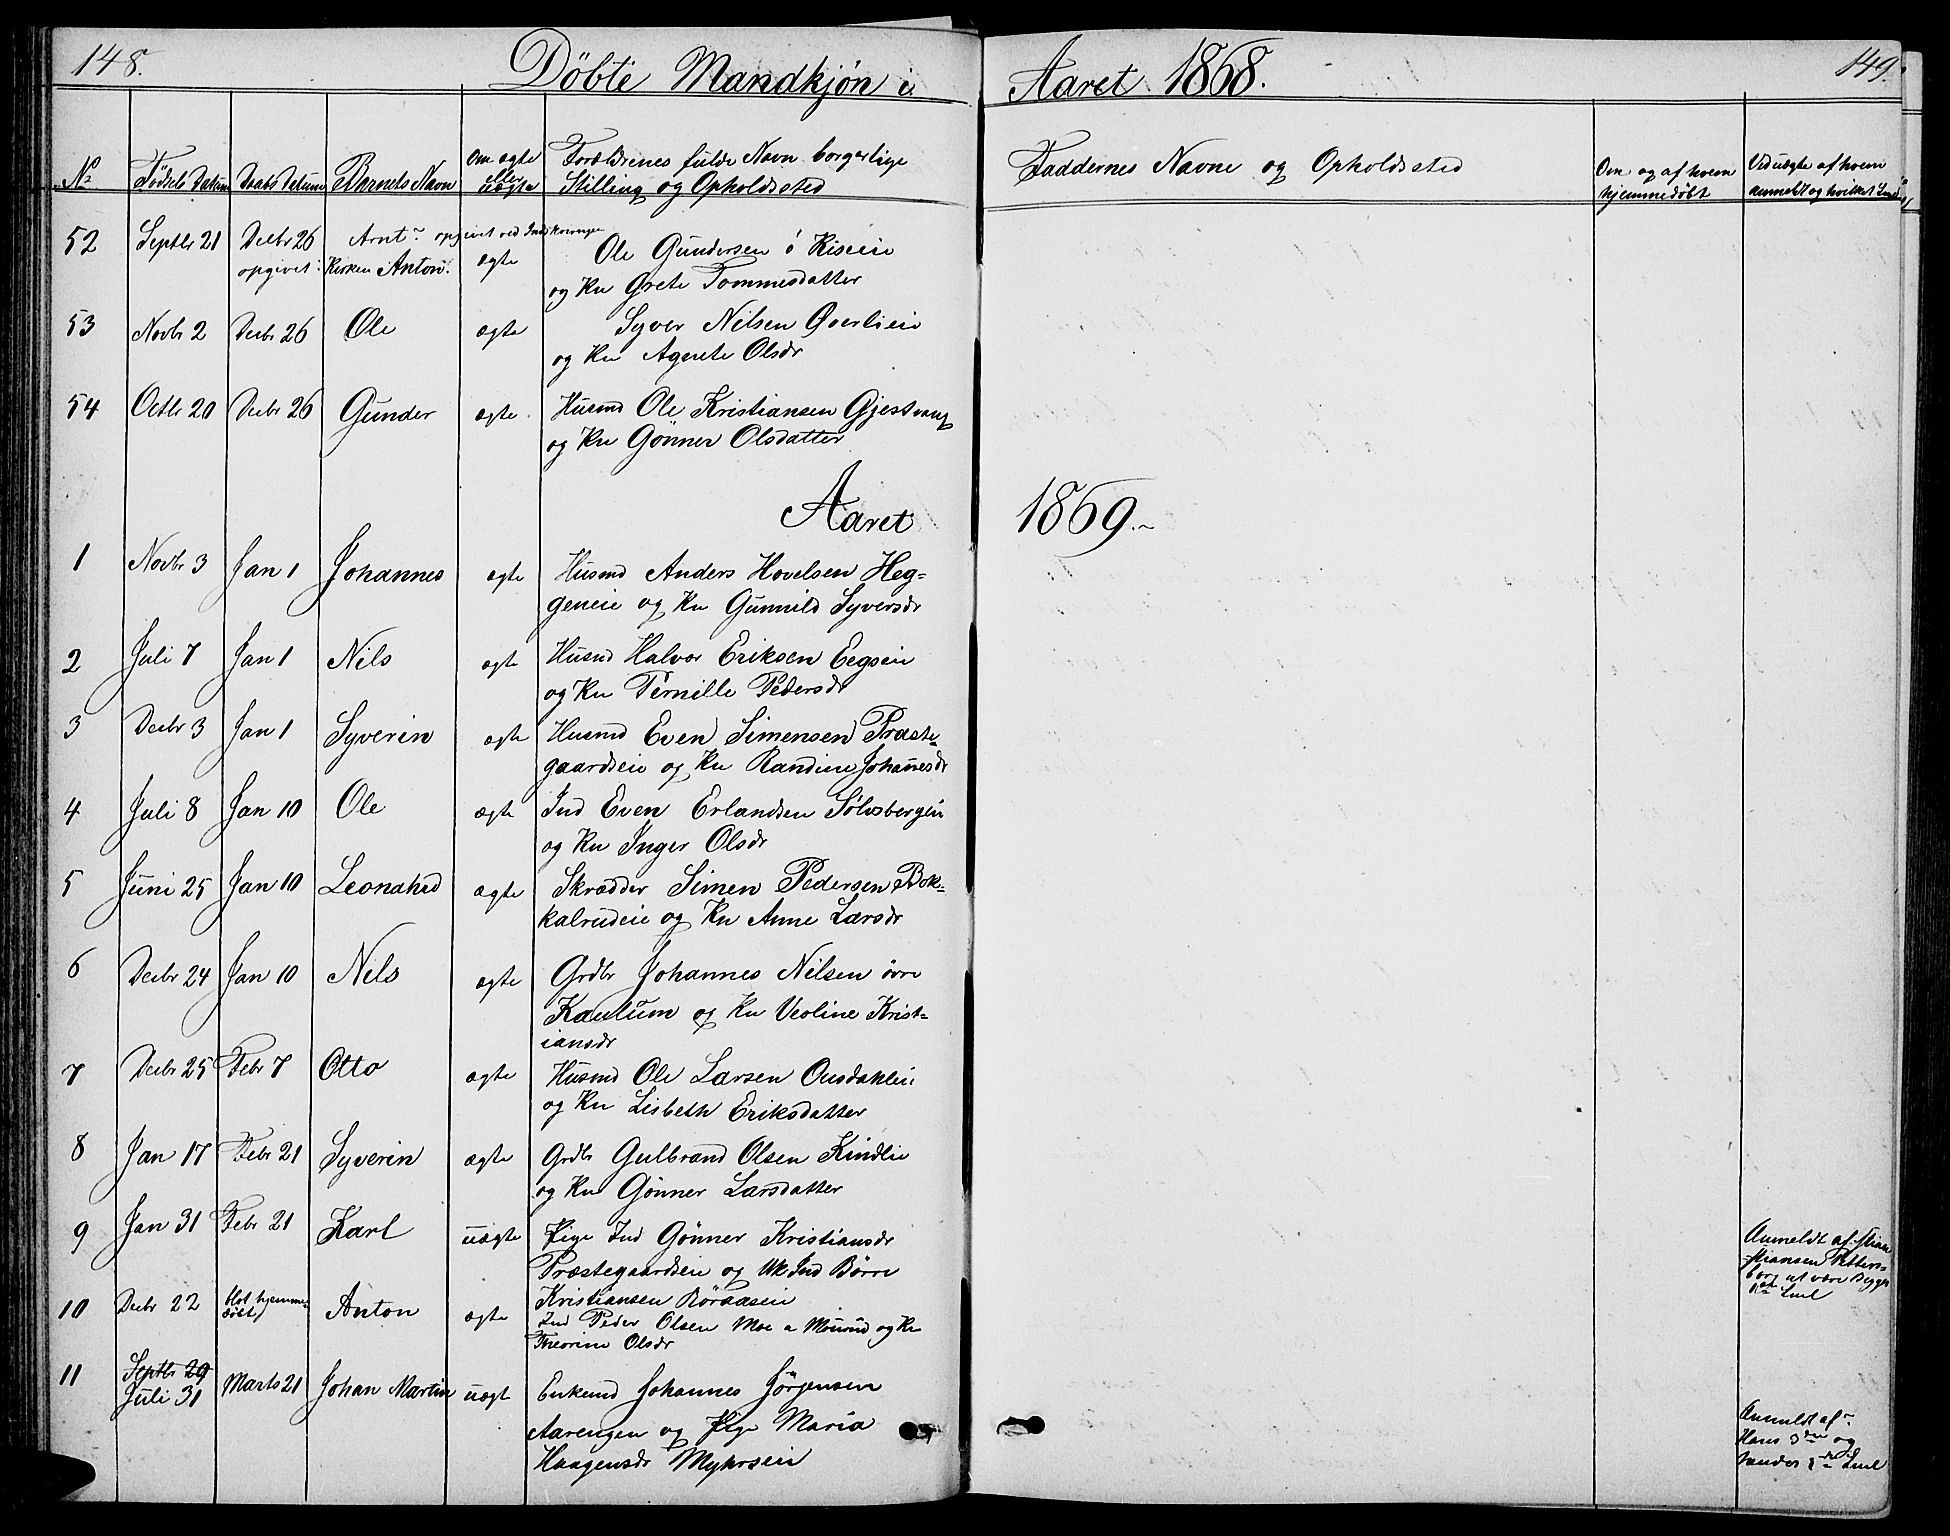 148.
Döbte Mandkjøn i
Aaret 1868.
149.
No
Födsels Datum
Daabs Datum
Barnets Navn
Om ægte
eller
uægte
Forældrenes fulde Navn borgerlige
Stilling og Opholdssted
Faddernes Navne og Opholdssted
Om og af hvem
hjemmedøbt
Ved uægte af hvem
anmeldt og hvilket
52 Septbr 21 Decbr 26 Arnt opgivet ved Indskrivningen ægte Ole Gundersen Riseeie
opgivet i Kirken Anton.
og Ku Grete Tommesdatter
53 Novbr 2 Decbr 26 Ole ægte Syver Nilsen Överlieie
og Ku Agnete Olsdr
54 Octbr 20 Decbr 26 Gunder ægte Husmd Ole Kristiansen Gjestvang
og Ku Gönner Olsdatter
Aaret 1869.
1 Novbr 3 Jan 1 Johannes ægte Husmd Anders Hovelsen Heg=
geneie og Ku Gunnild Syversdr
2 Juli 7 Jan 1 Nils ægte Husmd Halvor Eriksen Eegseie
og Ku Pernille Pedersdr
3 Decbr 3 Jan 1 Syverin ægte Husmd Even Simensen Præste=
gaardseie og Ku Randine Johannesdr
4 Juli 8 Jan 10 Ole ægte Ind Even Erlandsen Sølvsbergeie
og Ku Inger Olsdr
5 Juni 25 Jan 10 Leonahrd ægte Skrædder Simen Pedersen Bok=
kalrudeie og Ku Anne Larsdr
6 Decbr 24 Jan 10 Nils ægte Grdbr Johannes Nilsen övre
Kaulum og Ku Veoline Krist=
iansdr
7 Decbr 25 Febr 7 Otto ægte Husmd Ole Larsen Onsdahleie
og Ku Lisbeth Eriksdatter
8 Jan 17 Febr 21 Syverin ægte Grdbr Gulbrand Olsen Kindlie
og Ku Gönner Larsdatter
9 Jan 31 Febr 21 Karl uægte Pige Ind Gönner Kristiansdr
Præstegaardseie og Uk Ind Börre
Kristiansen Röraaseie
Anmeldt af
at være Begges
1ste Leiel
10 Decbr 22 blot hjemme=
døbt Anton ægte
Ind Peder Olsen Moe a Mourud og Ku
Theorine Olsdr
11 Septbr 29
Juli 31 Marts 21 Johan Martin uægt Enkemd Johannes Jörgensen
Aarengen og Pige Maria
Haagensdr Myhrseie
Anmeldt af
Hans 3die og
hendes 1ste Leiel